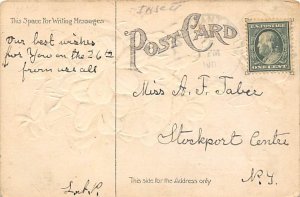 Insert
This Space for Writing Messages
POST CARD
Our best wishes
for You on the 26th
from us all
Miss A. F. Taber
Stockport Centre
N.Y.
ONE CENT
This side for the Address only